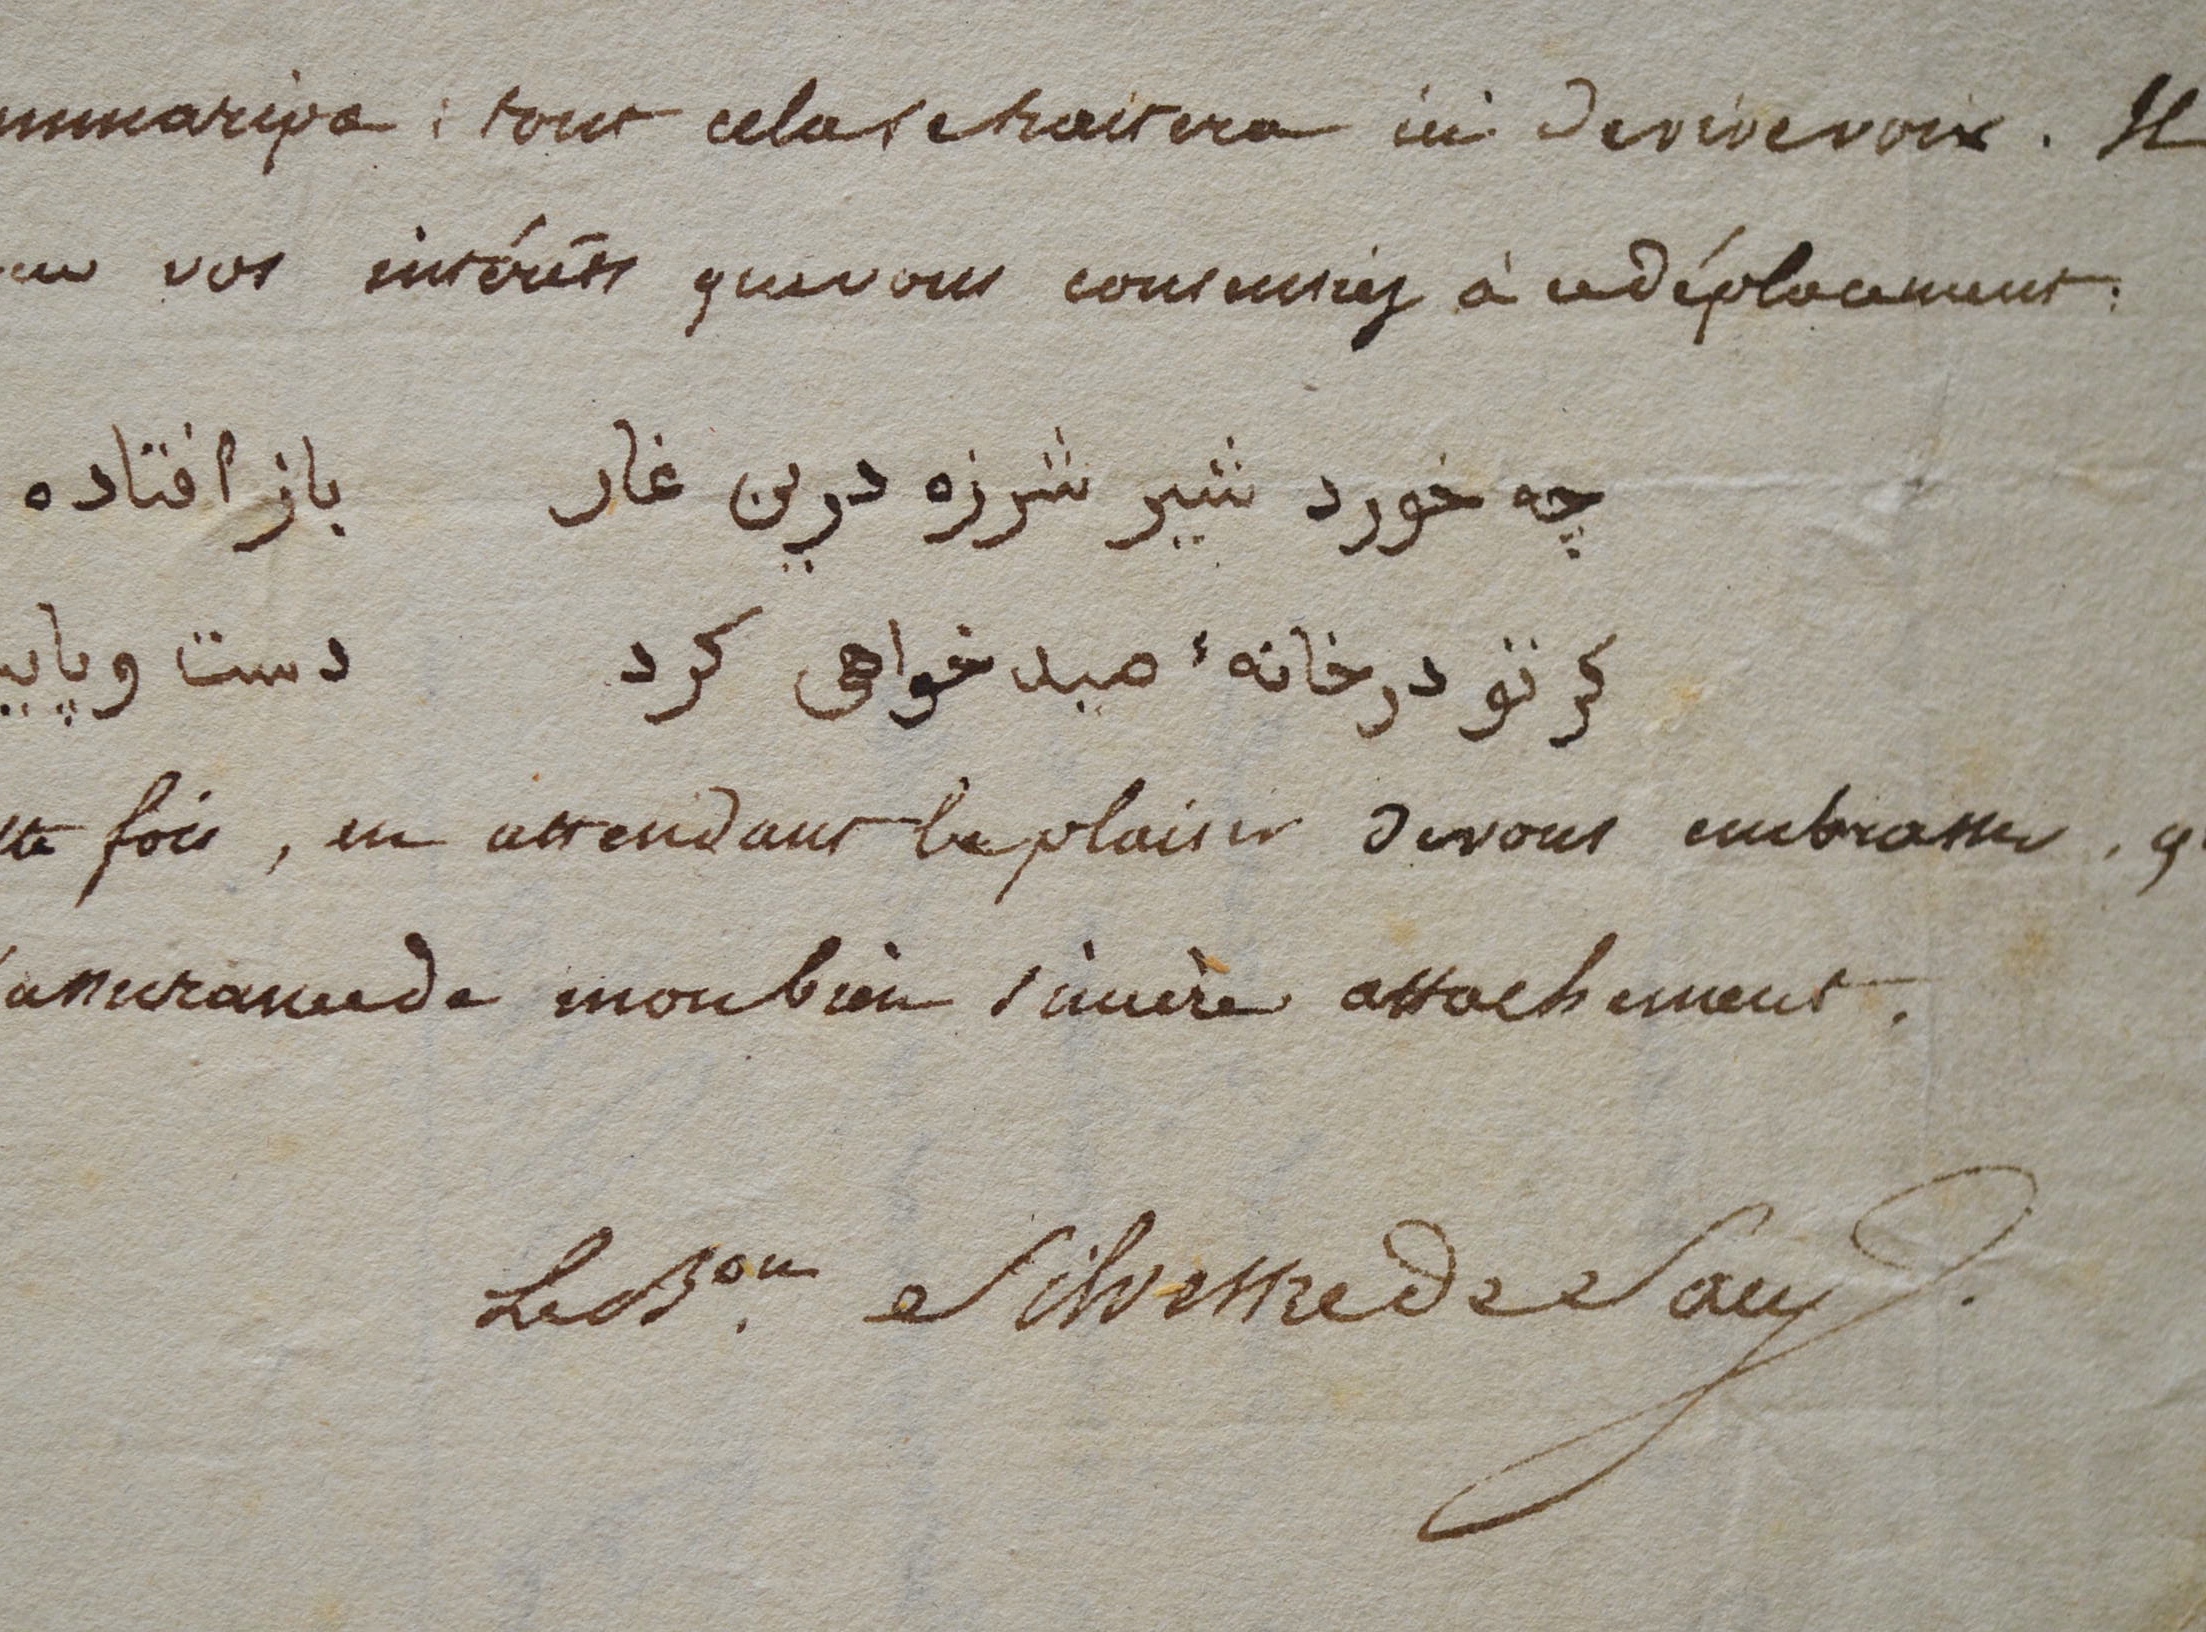 : tout cela se traitera ici de vive voix. Il
vos intérêts que vous consentiez à ce déplacement:
چه خورد شیر شرزه درین غار باز افتاده
کر تو در خانهٔ صید خواهی کرد دست وپای
fois, en attendant le plaisir de vous embrasser,
assurance de mon bien sincère attachement.
Le Bon. Silvestre de Sacy.